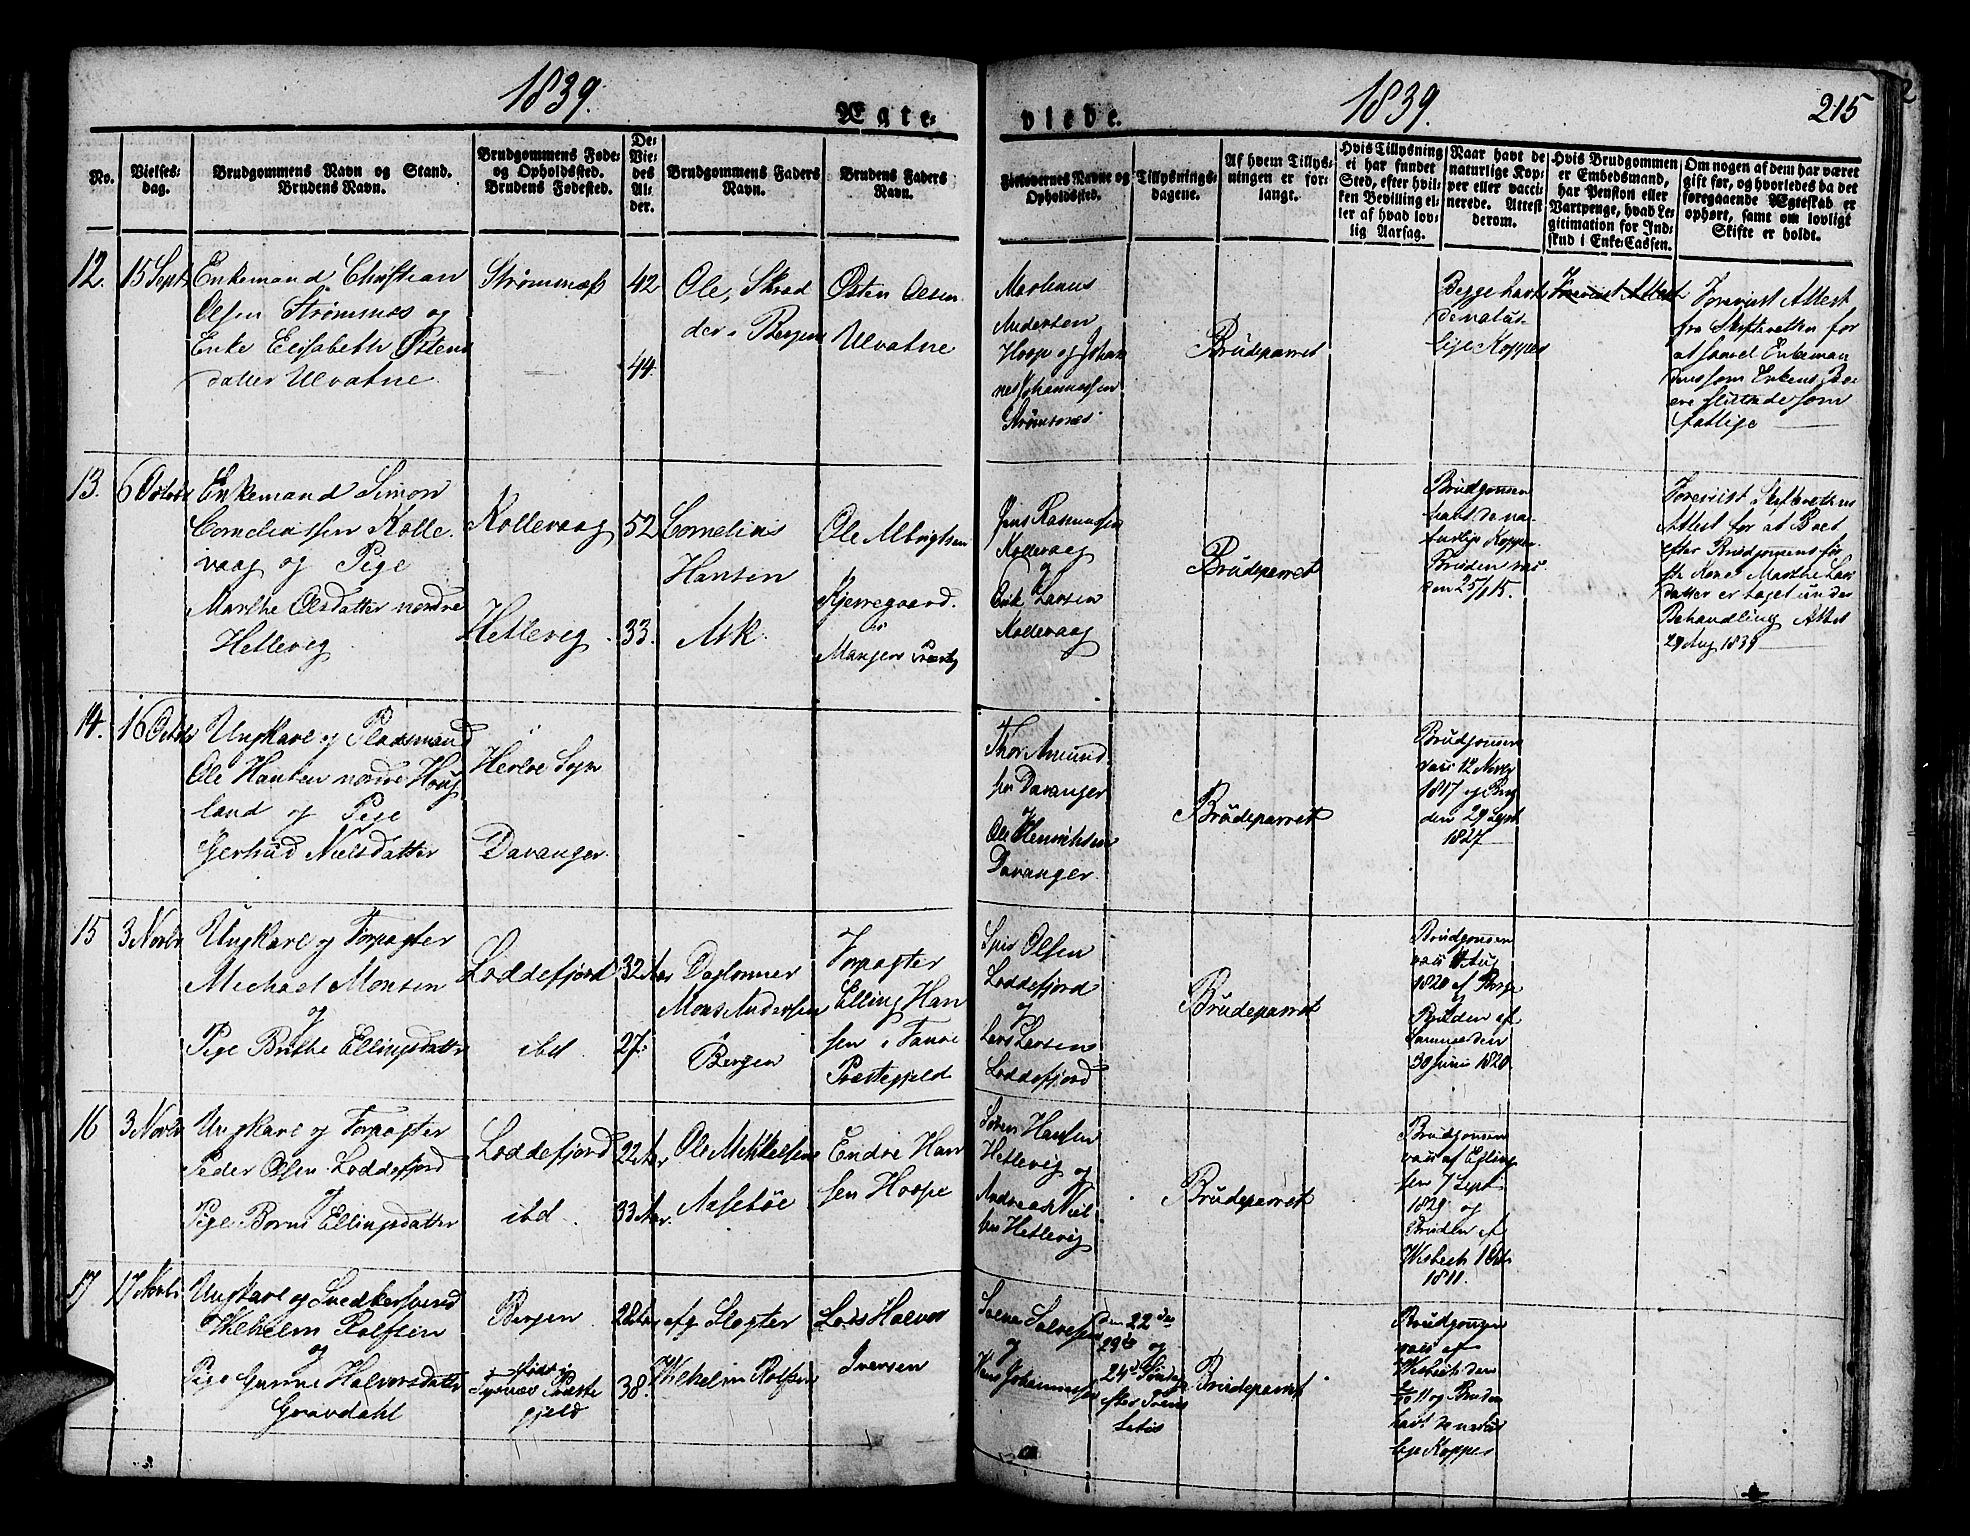 1839.
Ægte-
viede.
1839.
215
No.
Vielses-
dag.
Brudgommens Navn og Stand.
Brudens Navn.
Brudgommens Føde-
og Opholdssted.
Brudens Fødested.
De
Vie-
des
Al-
der.
Brudgommens Faders
Navn.
Brudens Faders
Navn.
Forlovernes Navne og
Opholdssted.
Tillysnings-
dagene.
Af hvem Tillys-
ningen er for-
langt.
Hvis Tillysning
ei har fundet
Sted, efter hvil-
ken Bevilling el-
ler af hvad lov-
lig Aarsag.
Naar havt de
naturlige Kop-
per eller vacci-
nerede. Attest
derom.
Hvis Brudgommen
er Embedsmand,
har Pension eller
Vartpenge, hvad Le-
gitimation for Ind-
skud i Enke-Cassen.
Om nogen af dem har været
gift før, og hvorledes da det
foregaaende Ægteskab er
ophørt, samt om lovligt
Skifte er holdt.
12.
15 Septr
Enkemand Christian
Olsen Strømnæs og
Enke Elisabeth Østens
datter Ulvatne
Strømnæss
42
44
Ole, Skred
der i Bergen
Østen Olsen
Ulvatne
Markuus
Andersen
Hoope og Johan
nes Johannessen
Strømsnæs
Brudeparret
Begge havt
de natur
lige Kopper
Foreviist Attest
Foreviist Attest
fra Skifteretten for
at saavel Enkeman
dens som Enkens Bo
ere sluttede som
fattige
13.
6 Octobr
Enkemand Simon
Corneliussen Kolle
vaag og Pige
Marthe Olsdatter nordre
Hetlevig
Kollevaag
Hetlevig
52
33.
Cornelius
Hansen
Ask
Ole Albrigtsen
Kjerregaard
i
Manger Præstg
Jens Rasmussen
Kollevaag
og
Erik Larsen
Kollevaag
Brudeparret
Brudgommen
havt de na-
turlige Kopper
Bruden vac
den 25/1 15.
Foreviist Skifterettens
Attest for at Boet
efter Brudgommens før
ste Kone Marthe Lars
datter er taget under
Behandling Attest
29 Aug 1839
14.
16 Octobr
Ungkarl og Pladsmand
Ole Hansen nordre Houg
land og Pige
Gerhud Nielsdatter
Herlø Sogn
Davanger
Thor Amund
sen Davanger
Ole Henrichsen
Davanger
Brudeparret
Brudgommen
vacc 12 Novbr
1817 og Brud
den 29 Septr
1827
15
3 Novbr
Ungkarl og Forpagter
Michael Monsen
og
Pige Brithe Ellingsdatter
Loddefjord
ibd
32 Aar
27
Daglønner
Mons Andersen
Bergen
Forpagter
Elling Han
sen i Fanøe
Præstegjeld
Siur Olsen
Loddefjord
og
Lars Larsen
Loddefjord
Brudeparret
Brudgommen
vacc Aug
1820 af
Bruden af
samme den
30 Juni 1820
16
3 Novbr
Ungkarl og Forpagter
Peder Olsen Loddefjord
og
Pige Borni Ellingsdatter
Loddefjord
ibd
22 Aar
33 Aar.
Ole Mikkelsen
Aasebøe
Endre Han
sen Hoope
Søren Hansen
Hetlevig og
Andreas Niel
sen Hetlevig
Brudeparret
Brudgommen
vacc af Elling
sen 7 Septr
1829 og
Bruden af
Wisbech
1811.
17
17 Novbr
Ungkarl og Snedkersvend
Wilhelm Rolfsen
og
Pige Gunne Halvorsdatter
Gravdahl
Bergen
født i
Tysnæs Præste
gjeld
28 Aar
38.
afg Slagter
Wilhelm Rolfsen
Lars Halvor
Iversen
Salve Salvesen
og
Hans Johannessen
Den 22de
23de og
24de Søndag
efter Trinit
tatis
Brudeparret
Brudgommen
vacc af
Wisbech den
11 og Bruden
havt de natur
lige Kopper